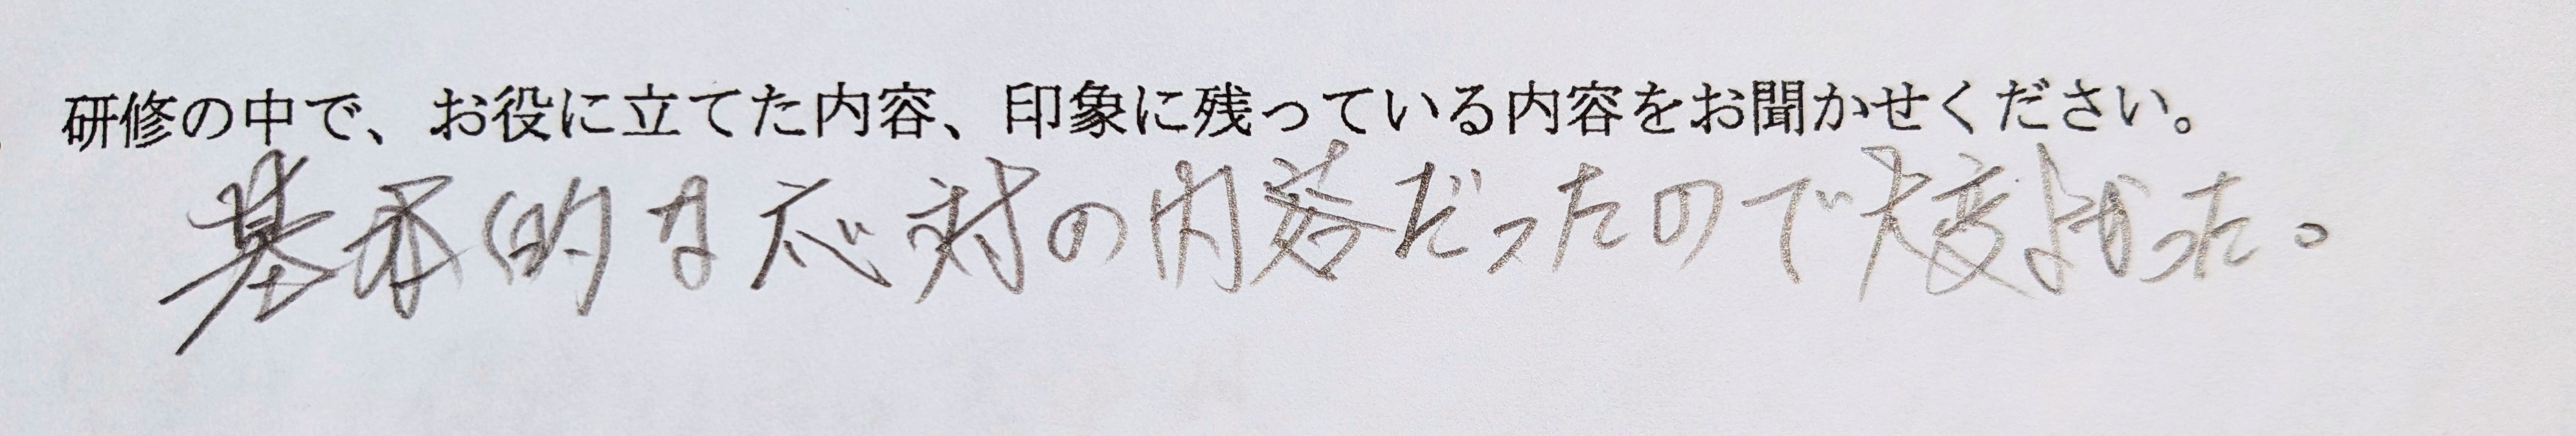 研修の中で、お役に立てた内容、印象に残っている内容をお聞かせください。
基本的な応対の内容だったので大変よかった。